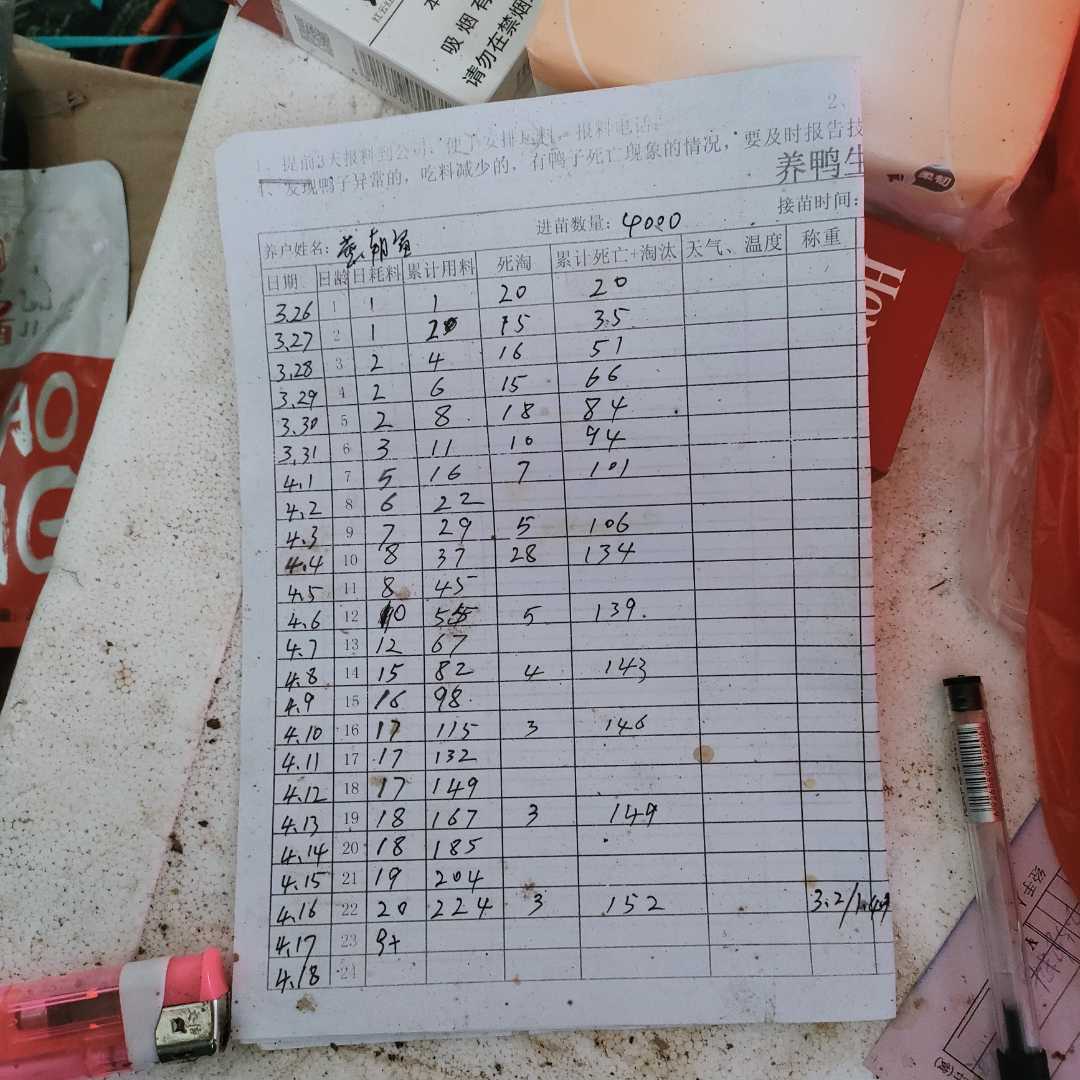 吸烟有
请勿在禁烟
2、
1、提前3天报料到公司,便于安排送料。报料电话:
1、发现鸭子异常的,吃料减少的,有鸭子死亡现象的情况,要及时报告技
养鸭生
养户姓名: 朝 进苗数量: 4000 接苗时间:
日期 日龄 日耗料 累计用料 死淘 累计死亡+淘汰 天气、温度 称重
3.26 1 1 1 20 20
3.27 2 1 2 15 35
3.28 3 2 4 16 51
3.29 4 2 6 15 66
3.30 5 2 8 18 84
3.31 6 3 11 10 94
4.1 7 5 16 7 101
4.2 8 6 22
4.3 9 7 29 5 106
4.4 10 8 37 28 134
4.5 11 8 45
4.6 12 10 55 5 139.
4.7 13 12 67
4.8 14 15 82 4 143
4.9 15 16 98.
4.10 16 17 115 3 146
4.11 17 17 132
4.12 18 17 149
4.13 19 18 167 3 149
4.14 20 18 185
4.15 21 19 204
4.16 22 20 224 3 152 3.2/1.49
4.17 23 9+
4.18 24